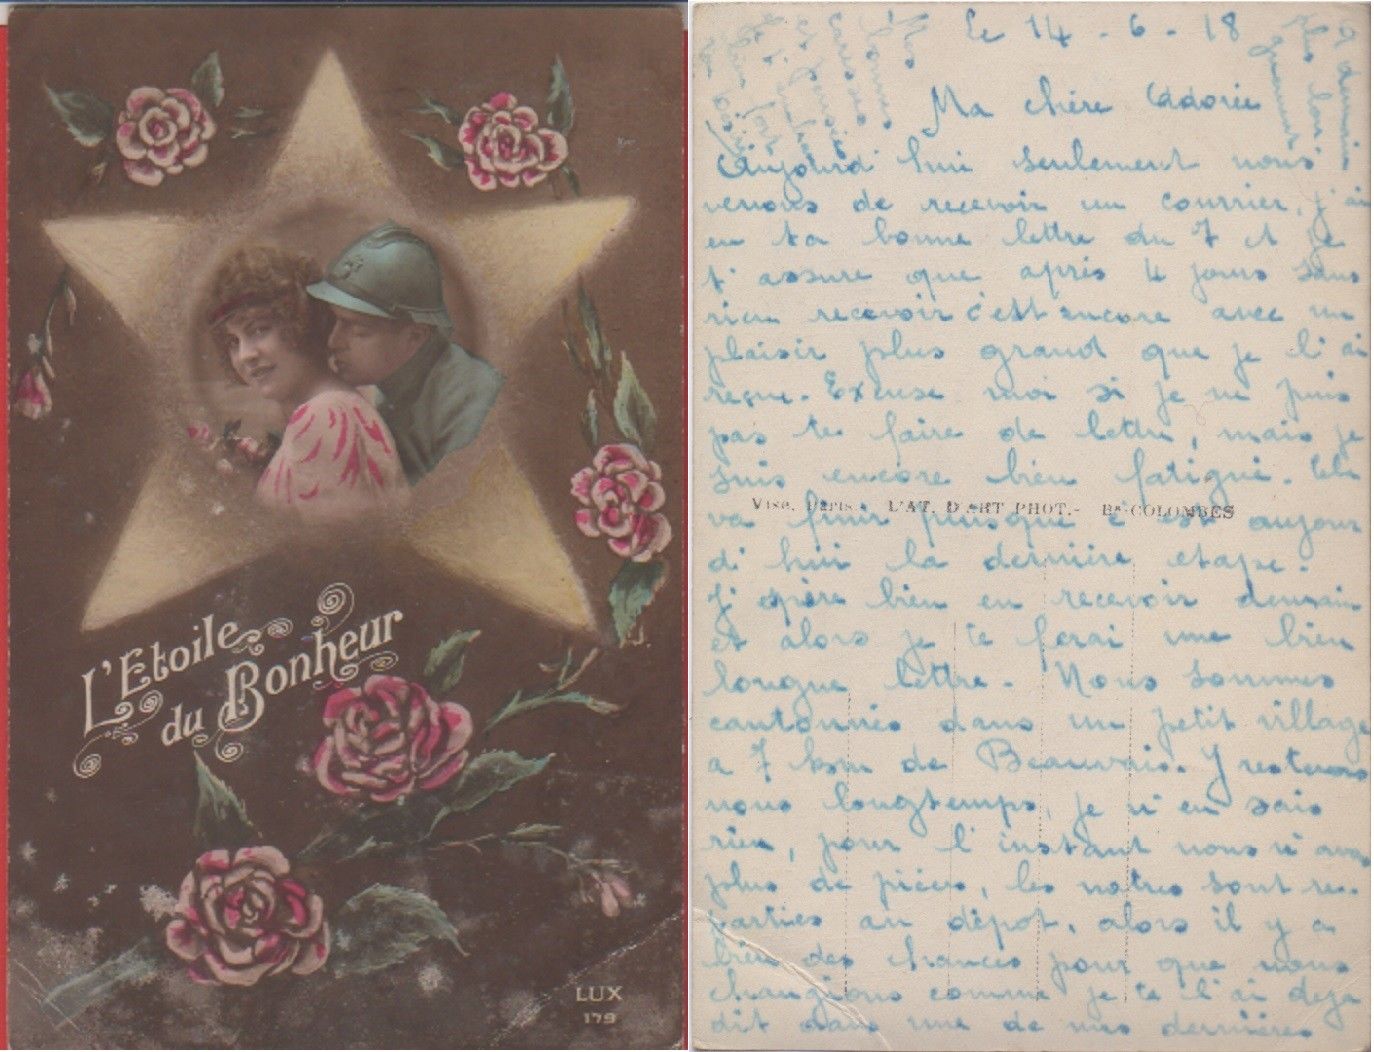 L'Etoile
du Bonheur
LUX
179
le 14 - 6 - 18
Ma chère Adorée
Aujourd'hui seulement nous
venons de recevoir un courrier, j'ai
eu ta bonne lettre du 7 et je
t'assure que après 4 jours sans
rien recevoir c'est encore avec un
plaisir plus grand que je l'ai
reçue. Excuse moi si je ne puis
pas te faire de lettre, mais je
suis encore bien fatigué. Cela
va finir puisque c'est aujour
d'hui la dernière etape.
Visé, Paris. L'AT. D'ART PHOT. - Bs-COLOMBES
J'espère bien en recevoir demain
et alors je te ferai une bien
longue lettre. Nous sommes
cantonnés dans un petit village
a 7 km de Beauvais. Y resterons
nous longtemps, je n'en sais
rien, pour l'instant nous n'avons
plus de pièces, les notres sont re-
parties au dépot, alors il y a
bien des chances pour que nous
changions comme je te l'ai deja
dit dans une de mes dernières
A demain
plus lon
guement
Mes
bonnes
caresses
et